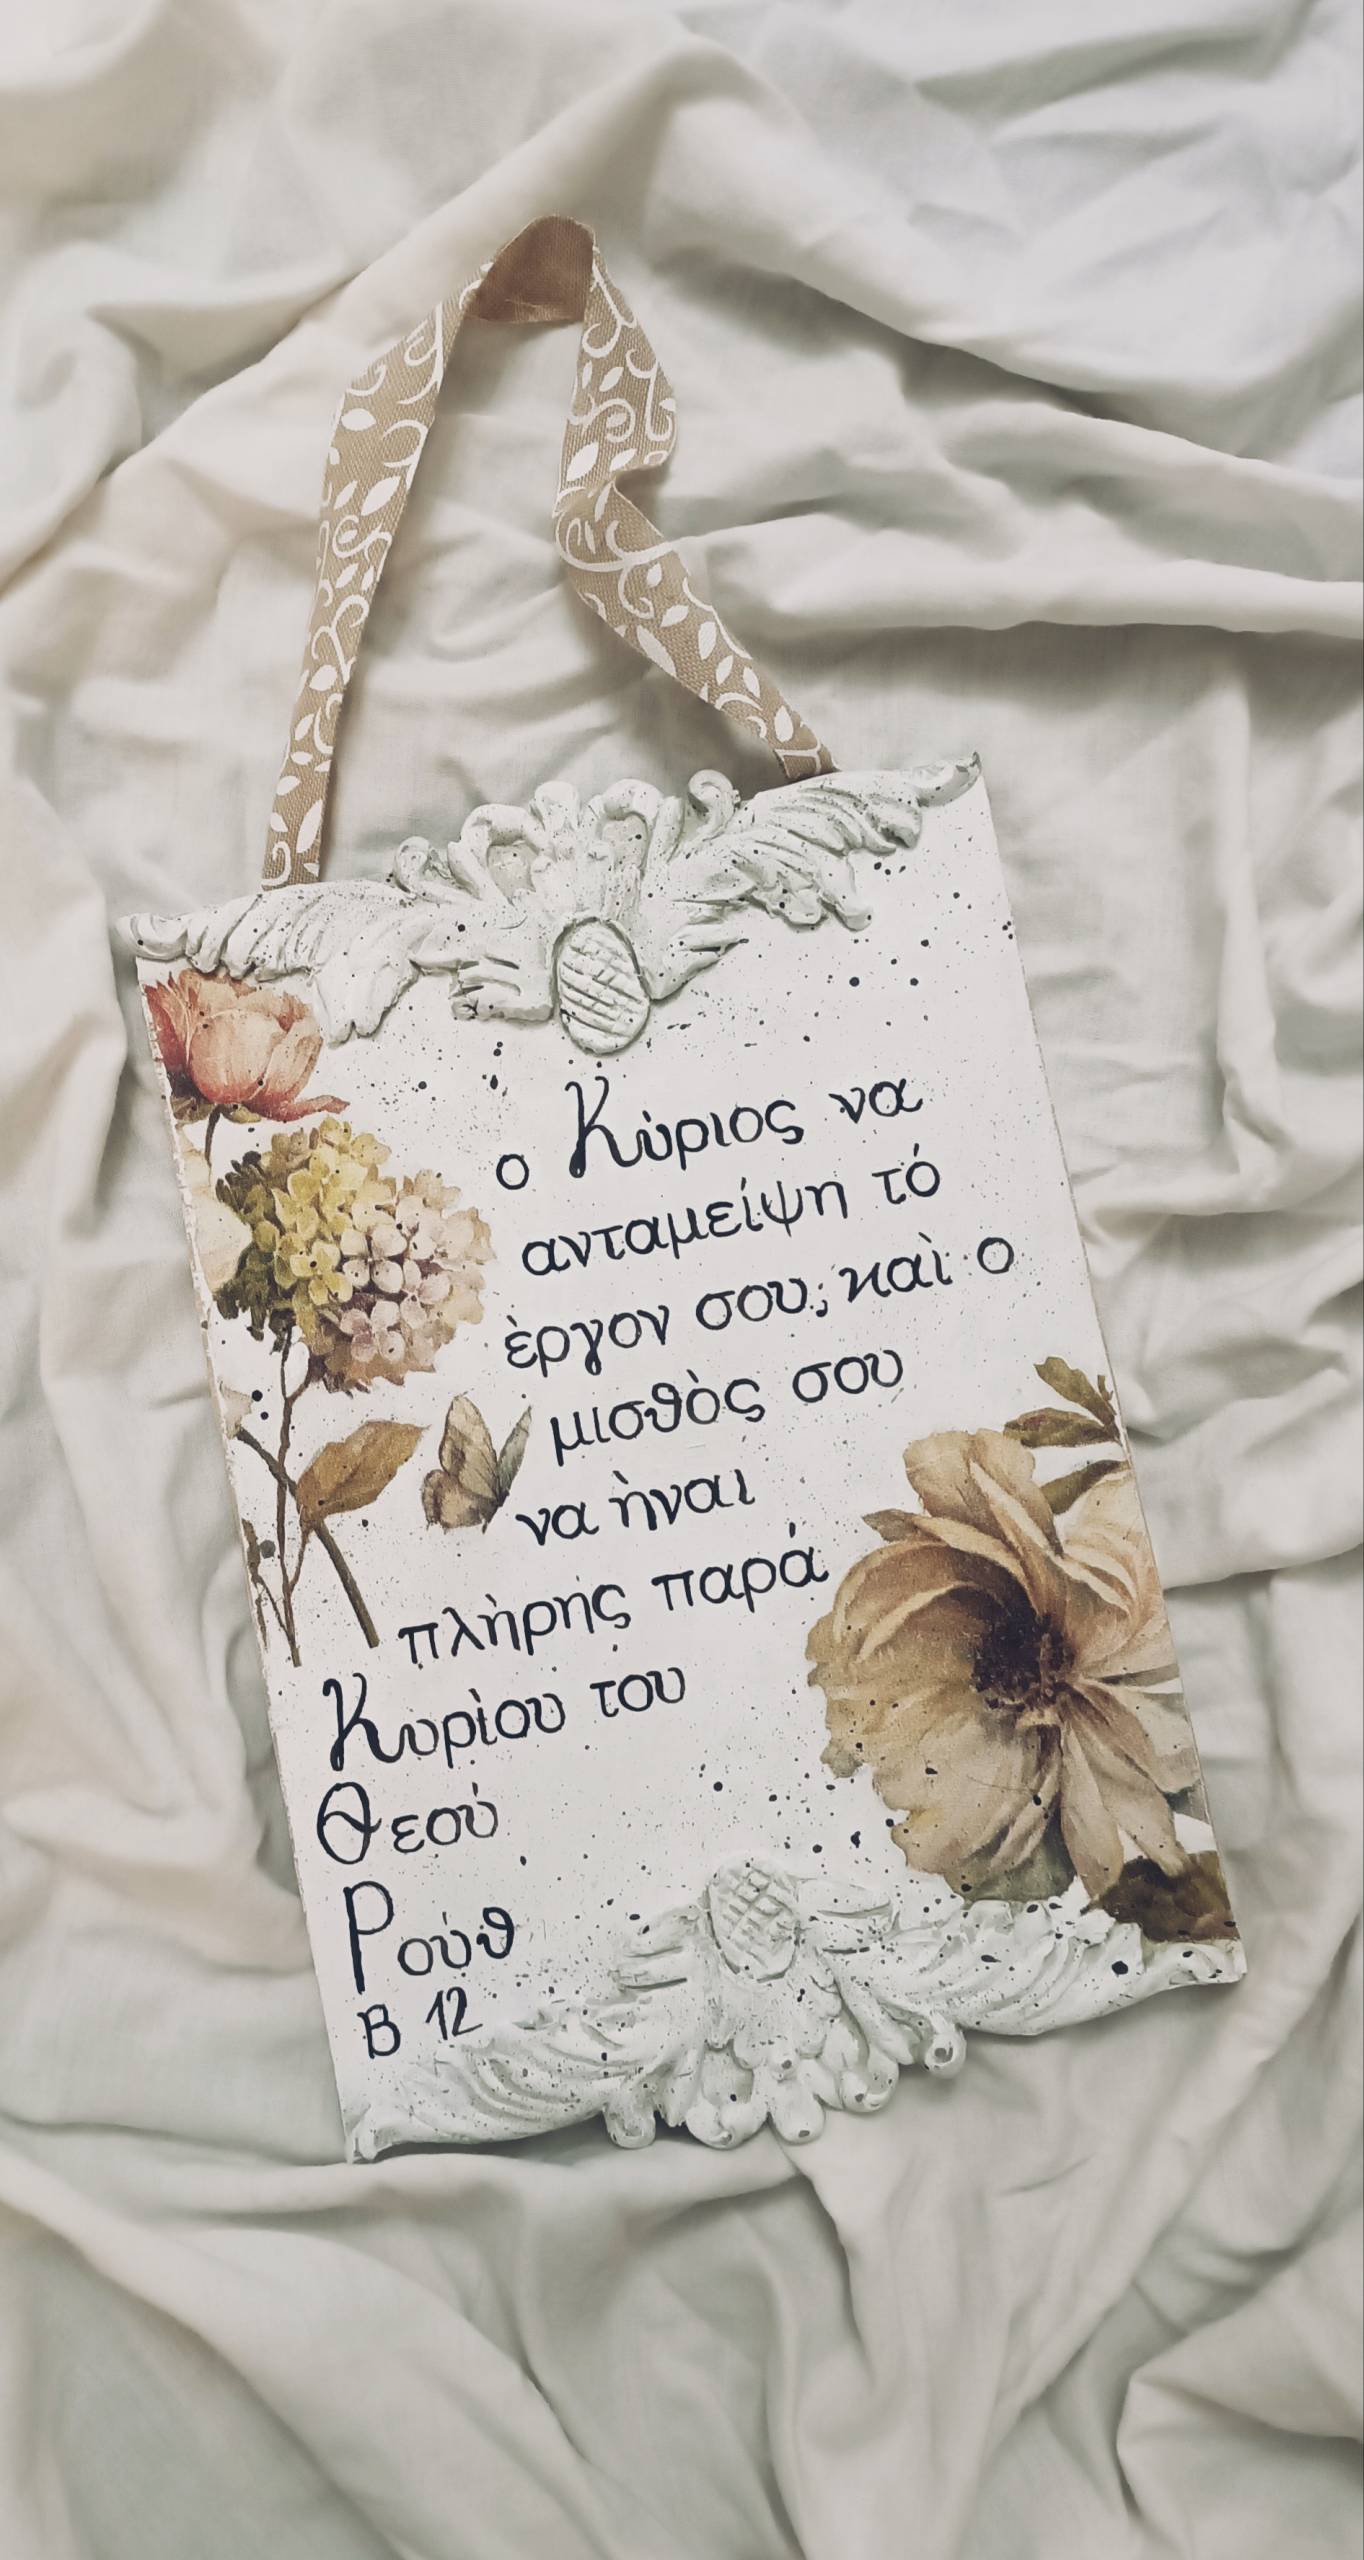 ο Κύριος να
ανταμείψη τό
ὲργον σου, καὶ ο
μισθὸς σου
να ὴναι
πλὴρης παρά
Κυρὶου του
Θεού
Ρούθ
Β 12